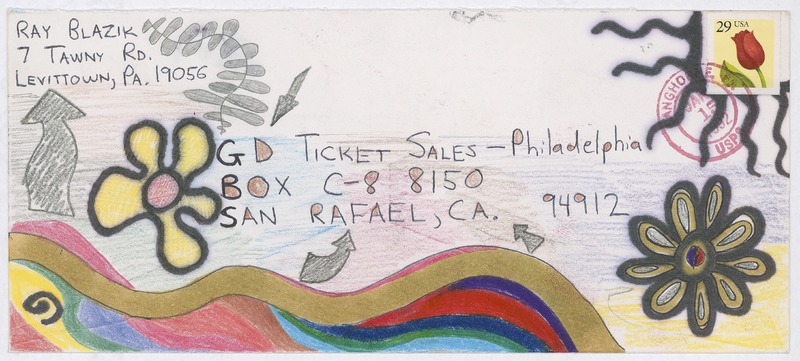 RAY BLAZIK
7 TAWNY RD.
LEVITTOWN, PA. 19056
29 USA
GD TICKET SALES - Philadelphia
BOX C-8 8150
SAN RAFAEL, CA. 94912
USPO